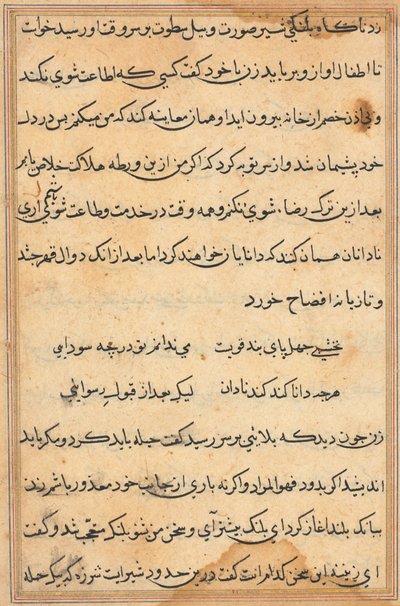 زد ناگاه پلنگی شیر صورت و پیل سطوت بر سر وقت او رسید خواست
تا اطفال او از و بر باید زن با خود گفت کسی که اطاعت شوی نکند
و بی اذن خصم از خانه بیرون اید او همان معاینه کند که من میکنم پس در دل
خود پشیمان شد و از سر توبه کرد که اگر من ازین ورطه هلاک خلاص یابم
بعد ازین ترک رضاء شوی نکنم و همه وقت در خدمت و طاعت شوی باشم اری
نادانان همان کنند که دانایان خواهند کرد اما بعد از انک دوال قهر چشند
و تازیانه افضاح خورد
نخشبی جهل پای بند قویست می ندانم تو در چه سودایی
هرچه دانا کند کند نادان لیک بعد از قبول رسوایی
زن چون دید که بلائی بر سر رسید گفت حیله باید کرد و مکر باید
اندیشید اگر بدود فهو المراد و اگر نه باری از جانب خود معذور باشم زن
ببانک بلند اغاز کرد ای پلنک پیشتر آی و سخن من شنو پلنک متعجب شد و گفت
ای زینه این سخن کدامست گفت درین حدود شیریست شرزه که بیک حمله